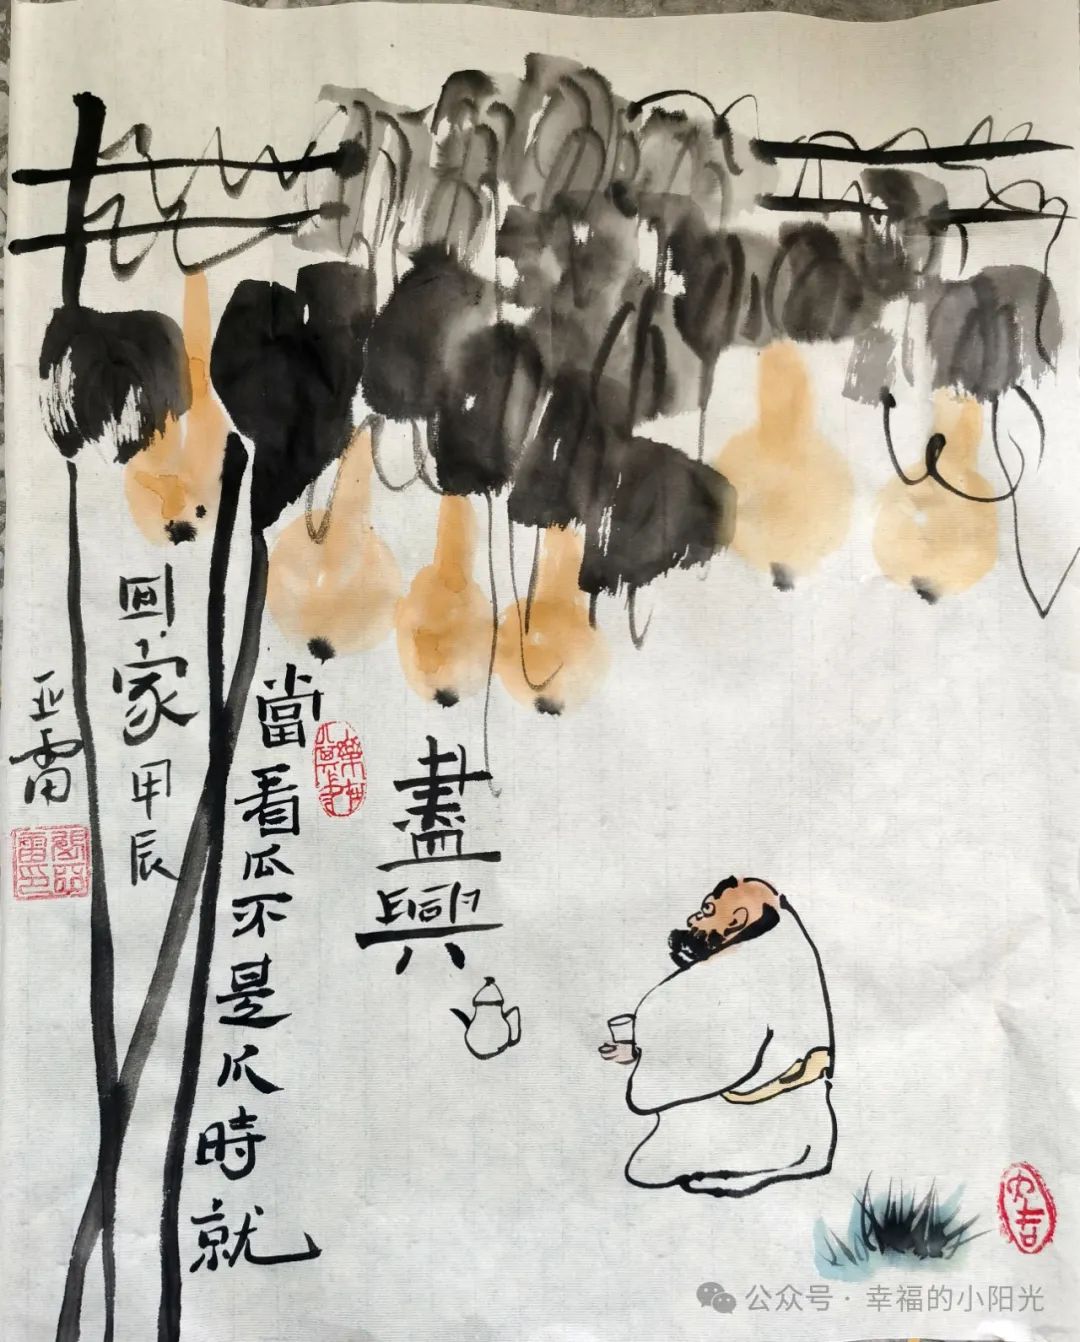 盡興
當看瓜不是爪時就
回家甲辰
亚雷
公众号 · 幸福的小阳光